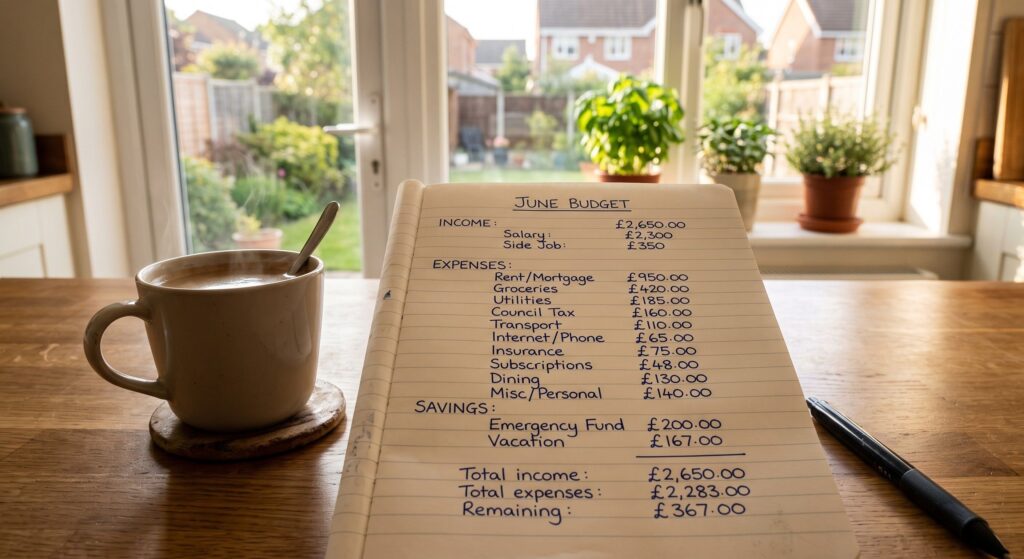 JUNE BUDGET
INCOME: £2,650.00
Salary: £2,300
Side Job: £350
EXPENSES:
Rent/Mortgage £950.00
Groceries £420.00
Utilities £185.00
Council Tax £160.00
Transport £110.00
Internet/Phone £65.00
Insurance £75.00
Subscriptions £48.00
Dining £130.00
Misc/Personal £140.00
SAVINGS:
Emergency Fund £200.00
Vacation £167.00
Total income: £2,650.00
Total expenses: £2,283.00
Remaining: £367.00